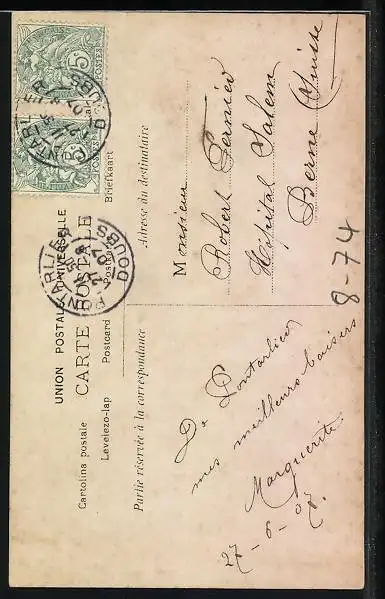 UNION POSTALE UNIVERSELLE
CARTE POSTALE
Cartolina postale
Postkarte
Levelezo-lap
Postcard
Briefkaart
Partie réservée à la correspondance
Adresse du destinataire
De Pontarlier
mes meilleurs baisers
Marguerite
27-6-07.
Monsieur
Robert Pernier
Hôpital Salem
Berne Suisse
8-74
PONTARLIER
DOUBS
PONTARLIER
DOUBS
5c
5c
POSTES
POSTES